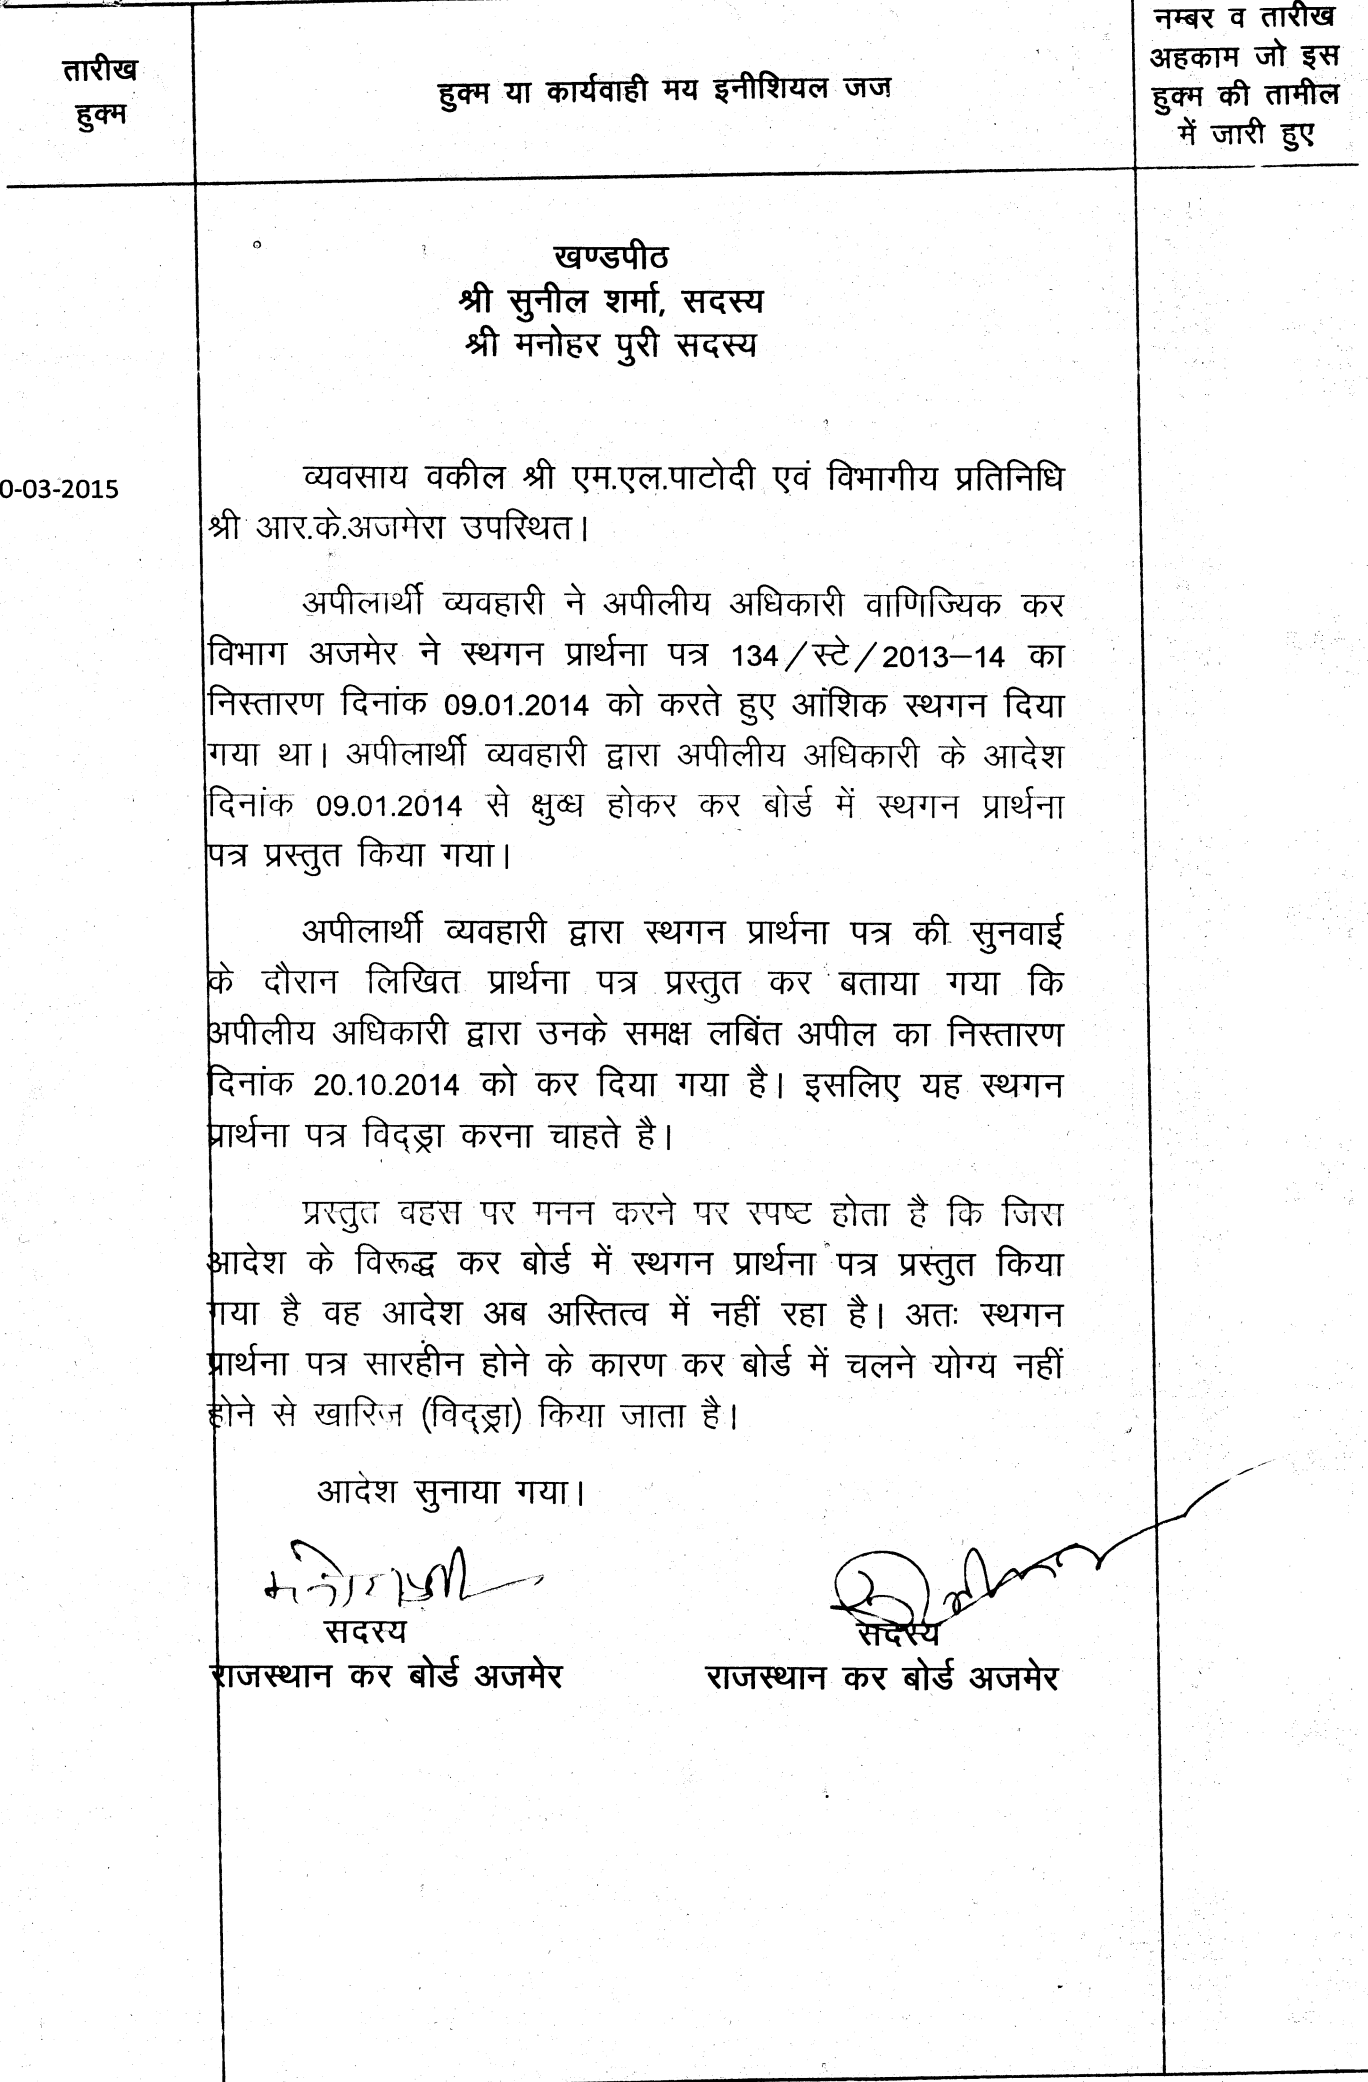 तारीख
हुक्म
हुक्म या कार्यवाही मय इनीशियल जज
नम्बर व तारीख
अहकाम जो इस
हुक्म की तामील
में जारी हुए
खण्डपीठ
श्री सुनील शर्मा, सदस्य
श्री मनोहर पुरी सदस्य
0-03-2015
व्यवसाय वकील श्री एम.एल.पाटोदी एवं विभागीय प्रतिनिधि
श्री आर.के.अजमेरा उपस्थित।
अपीलार्थी व्यवहारी ने अपीलीय अधिकारी वाणिज्यिक कर
विभाग अजमेर ने स्थगन प्रार्थना पत्र 134/स्टे/2013–14 का
निस्तारण दिनांक 09.01.2014 को करते हुए आंशिक स्थगन दिया
गया था। अपीलार्थी व्यवहारी द्वारा अपीलीय अधिकारी के आदेश
दिनांक 09.01.2014 से क्षुब्ध होकर कर बोर्ड में स्थगन प्रार्थना
पत्र प्रस्तुत किया गया।
अपीलार्थी व्यवहारी द्वारा स्थगन प्रार्थना पत्र की सुनवाई
के दौरान लिखित प्रार्थना पत्र प्रस्तुत कर बताया गया कि
अपीलीय अधिकारी द्वारा उनके समक्ष लबिंत अपील का निस्तारण
दिनांक 20.10.2014 को कर दिया गया है। इसलिए यह स्थगन
प्रार्थना पत्र विद्ड्रा करना चाहते है।
प्रस्तुत वहस पर मनन करने पर स्पष्ट होता है कि जिस
आदेश के विरूद्ध कर बोर्ड में स्थगन प्रार्थना पत्र प्रस्तुत किया
गया है वह आदेश अब अस्तित्व में नहीं रहा है। अतः स्थगन
प्रार्थना पत्र सारहीन होने के कारण कर बोर्ड में चलने योग्य नहीं
होने से खारिज (विद्ड्रा) किया जाता है।
आदेश सुनाया गया।
सदस्य
सदस्य
राजस्थान कर बोर्ड अजमेर
राजस्थान कर बोर्ड अजमेर